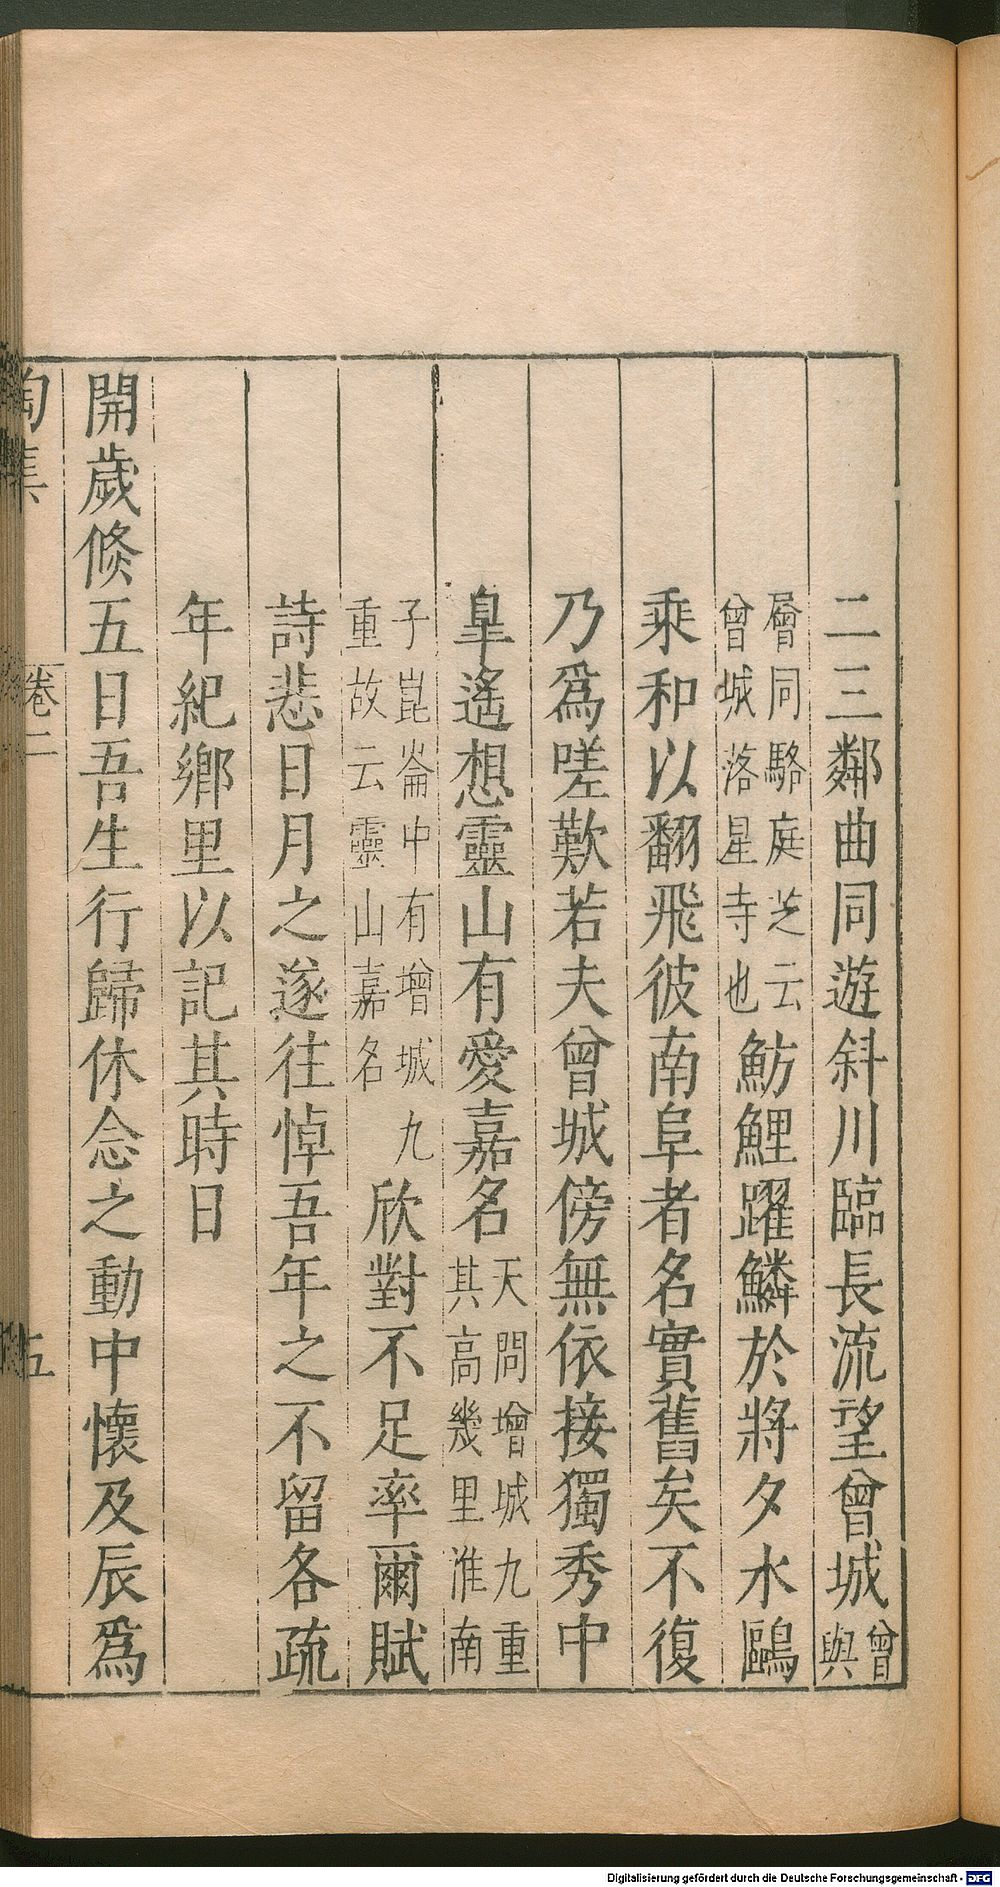 二三鄰曲同遊斜川臨長流望曾城曾與
層同駱庭芝云曾城落星寺也魴鯉躍鱗於將夕水鷗
乘和以翻飛彼南阜者名實舊矣不復
乃爲嗟歎若夫曾城傍無依接獨秀中
臯遙想靈山有愛嘉名天問增城九重其高幾里淮南
子崑崙中有增城九重故云靈山嘉名欣對不足率爾賦
詩悲日月之遂往悼吾年之不留各疏
年紀鄉里以記其時日
開歲倐五日吾生行歸休念之動中懷及辰爲
陶集 卷二 五
Digitalisierung gefördert durch die Deutsche Forschungsgemeinschaft - DFG